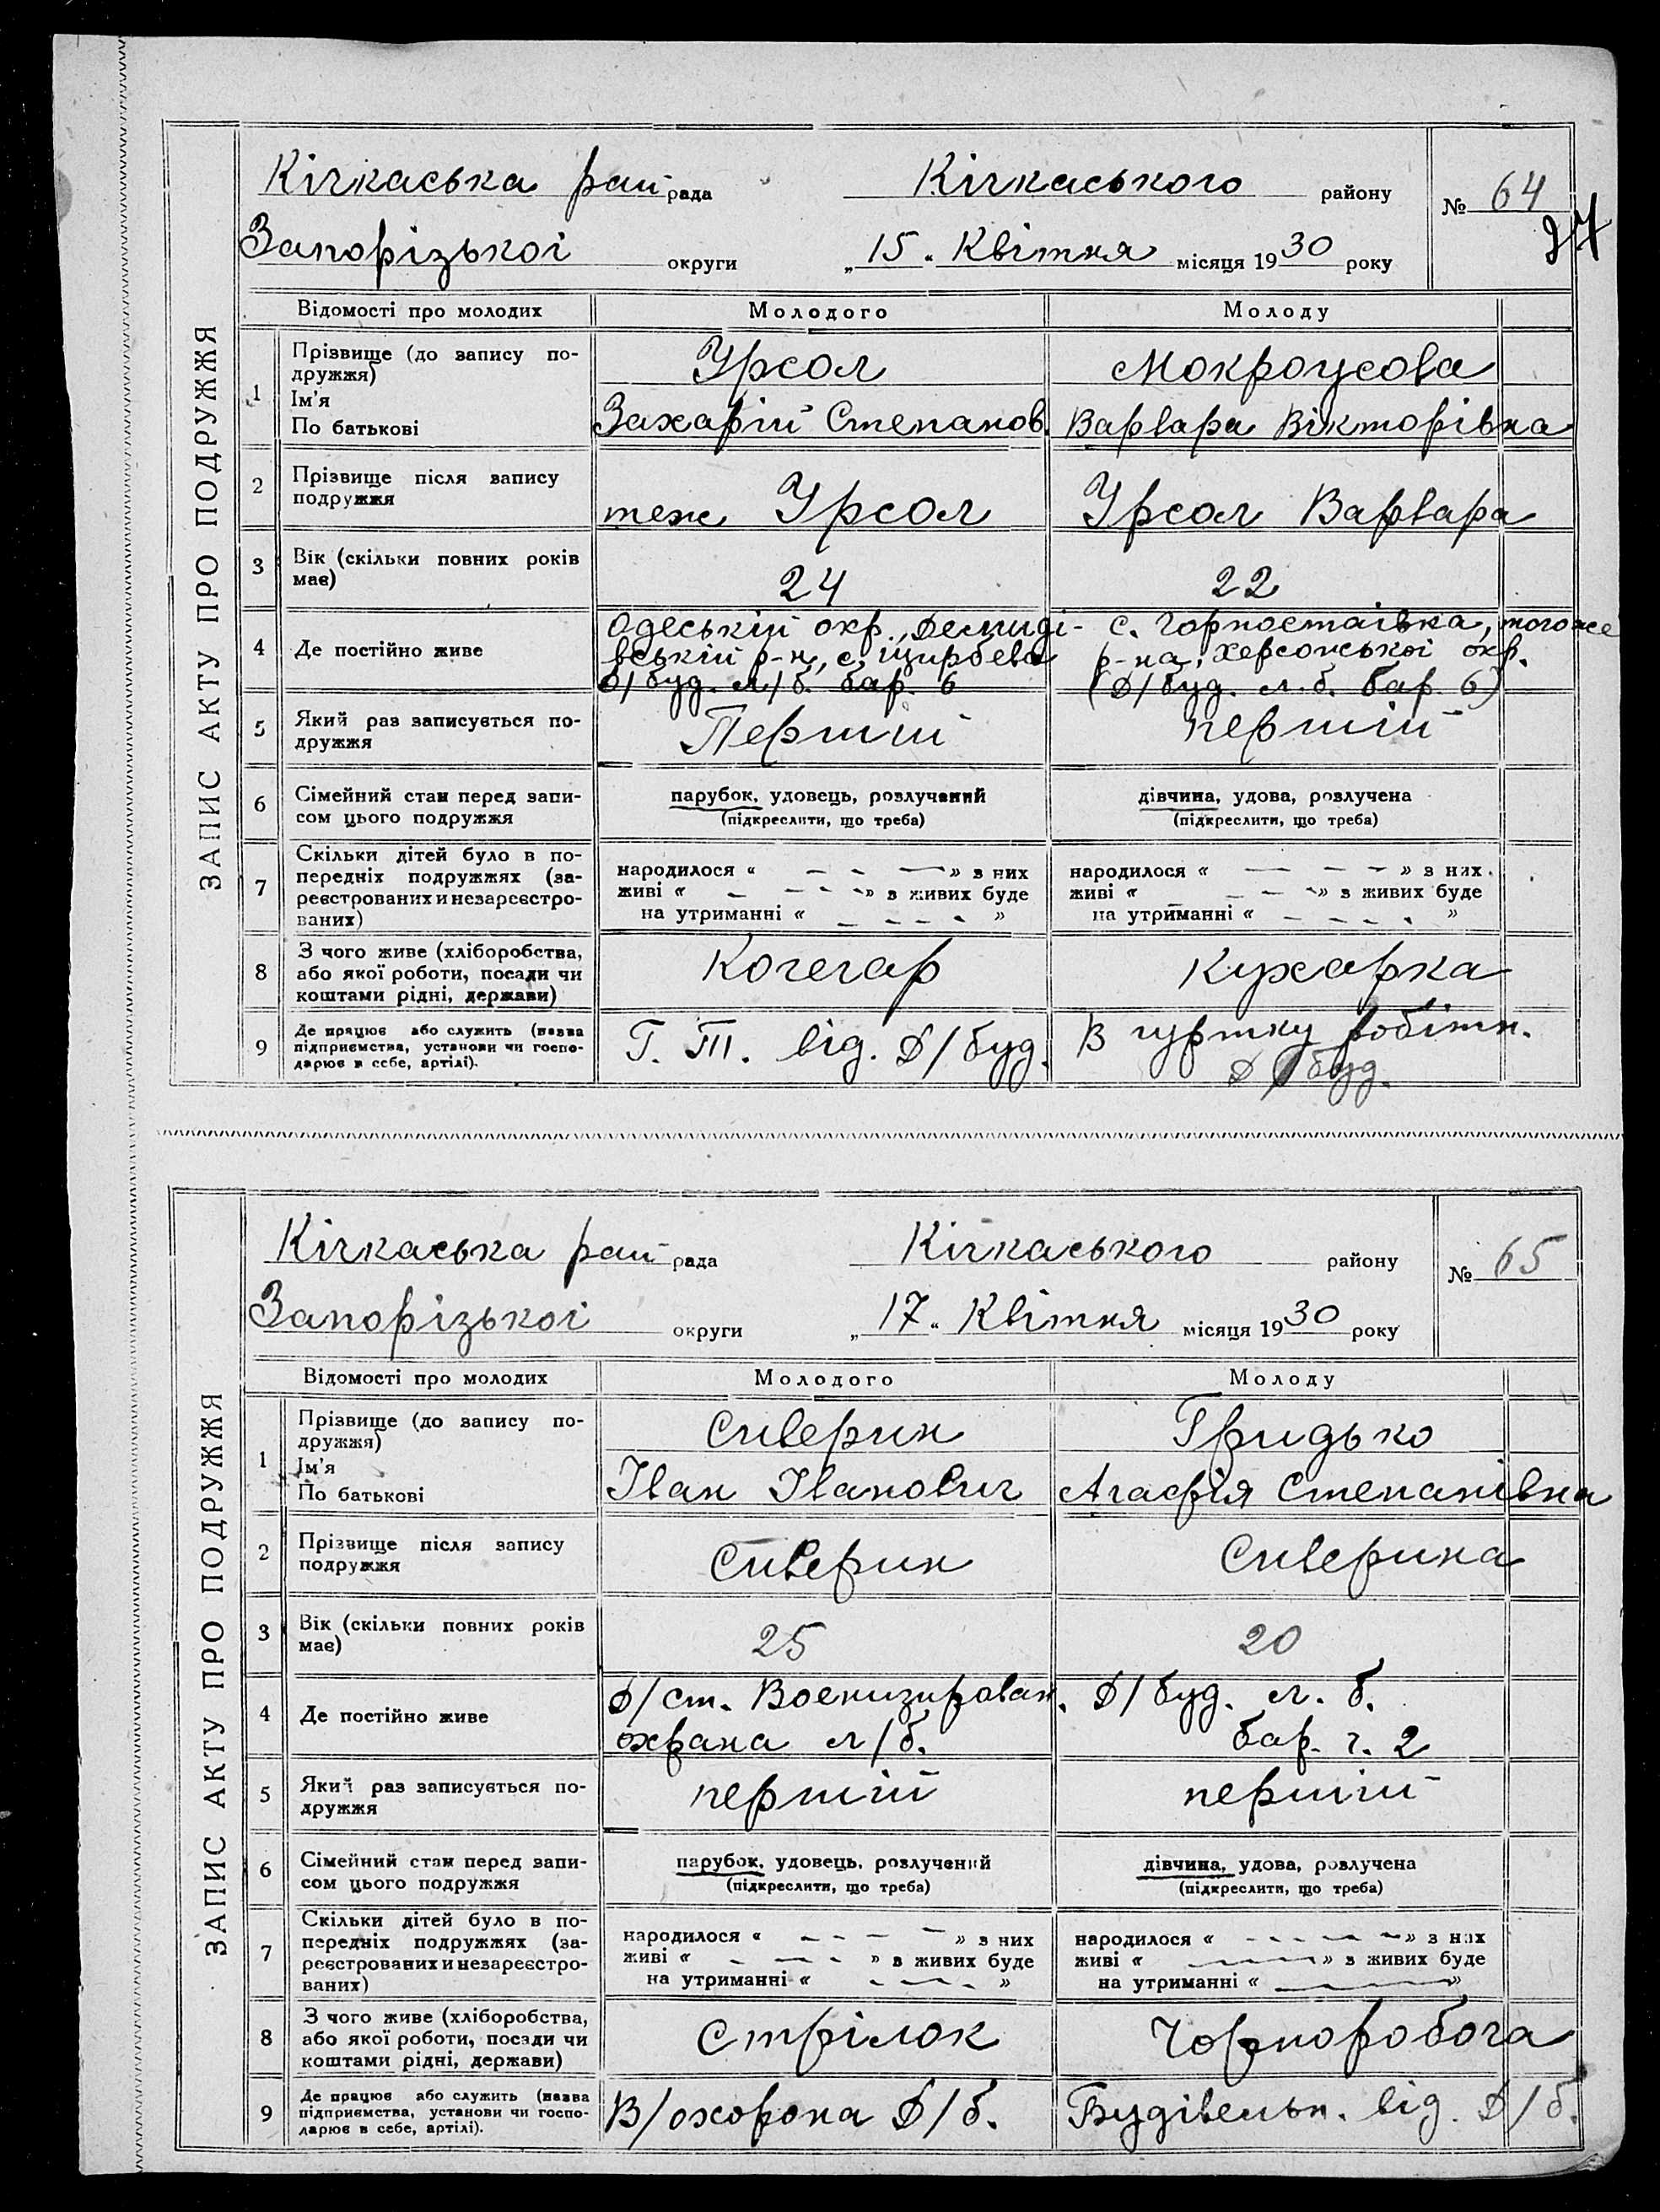 ЗАПИС АКТУ ПРО ПОДРУЖЖЯ
Кічкаська рай рада Кічкаського району № 64
27
Запорізької округи „15" Квітня місяця 1930 року
Відомості про молодих Молодого Молоду
1 Прізвище (до запису по-
дружжя) Урсол Мокроусова
Ім'я
По батькові Захарій Степанов. Варвара Вікторівна
2 Прізвище після запису
подружжя теж Урсол Урсол Варвара
3 Вік (скільки повних років
має) 24 22
4 Де постійно живе
Одеській окр., Демиді-
вський р-н, с. Щирбева
Д/буд. л/б. бар. 6
с. Горностаївка, того же
р-на, Херсонської окр.
(Д/буд. л.б. бар. 6)
5 Який раз записується по-
дружжя Перший перший
6 Сімейний стан перед запи-
сом цього подружжя
парубок, удовець, розлучений
(підкреслити, що треба)
дівчина, удова, розлучена
(підкреслити, що треба)
7 Скільки дітей було в по-
передніх подружжях (за-
реєстрованих и незареєстро-
ваних)
народилося « — — — » з них
живі « — — — » з живих буде
на утриманні « — — — »
народилося « — — — » з них
живі « — — — » з живих буде
на утриманні « — — — »
8 З чого живе (хліборобства,
або якої роботи, посади чи
коштами рідні, держави)
Кочегар Кухарка
9 Де працює або служить (назва
підприємства, установи чи госпо-
дарює в себе, артілі).
Г. Т. від. Д/буд.
В гуртку робітн.
Д/буд.
ЗАПИС АКТУ ПРО ПОДРУЖЖЯ
Кічкаська рай рада Кічкаського району № 65
Запорізької округи „17" Квітня місяця 1930 року
Відомості про молодих Молодого Молоду
1 Прізвище (до запису по-
дружжя) Сиверин Гридько
Ім'я
По батькові Іван Іванович Агафія Степанівна
2 Прізвище після запису
подружжя Сиверин Сиверина
3 Вік (скільки повних років
має) 25 20
4 Де постійно живе
Д/ст. Военизирован.
охрана л/б.
Д/буд. л. б.
бар. ч. 2
5 Який раз записується по-
дружжя перший перший
6 Сімейний стан перед запи-
сом цього подружжя
парубок, удовець, розлучений
(підкреслити, що треба)
дівчина, удова, розлучена
(підкреслити, що треба)
7 Скільки дітей було в по-
передніх подружжях (за-
реєстрованих и незареєстро-
ваних)
народилося « — — — » з них
живі « — — — » з живих буде
на утриманні « — — — »
народилося « — — — » з них
живі « ——— » з живих буде
на утриманні « ——— »
8 З чого живе (хліборобства,
або якої роботи, посади чи
коштами рідні, держави)
Стрілок Чорноробоча
9 Де працює або служить (назва
підприємства, установи чи госпо-
дарює в себе, артілі).
В/охорона Д/б. Будівельн. від. Д/б.